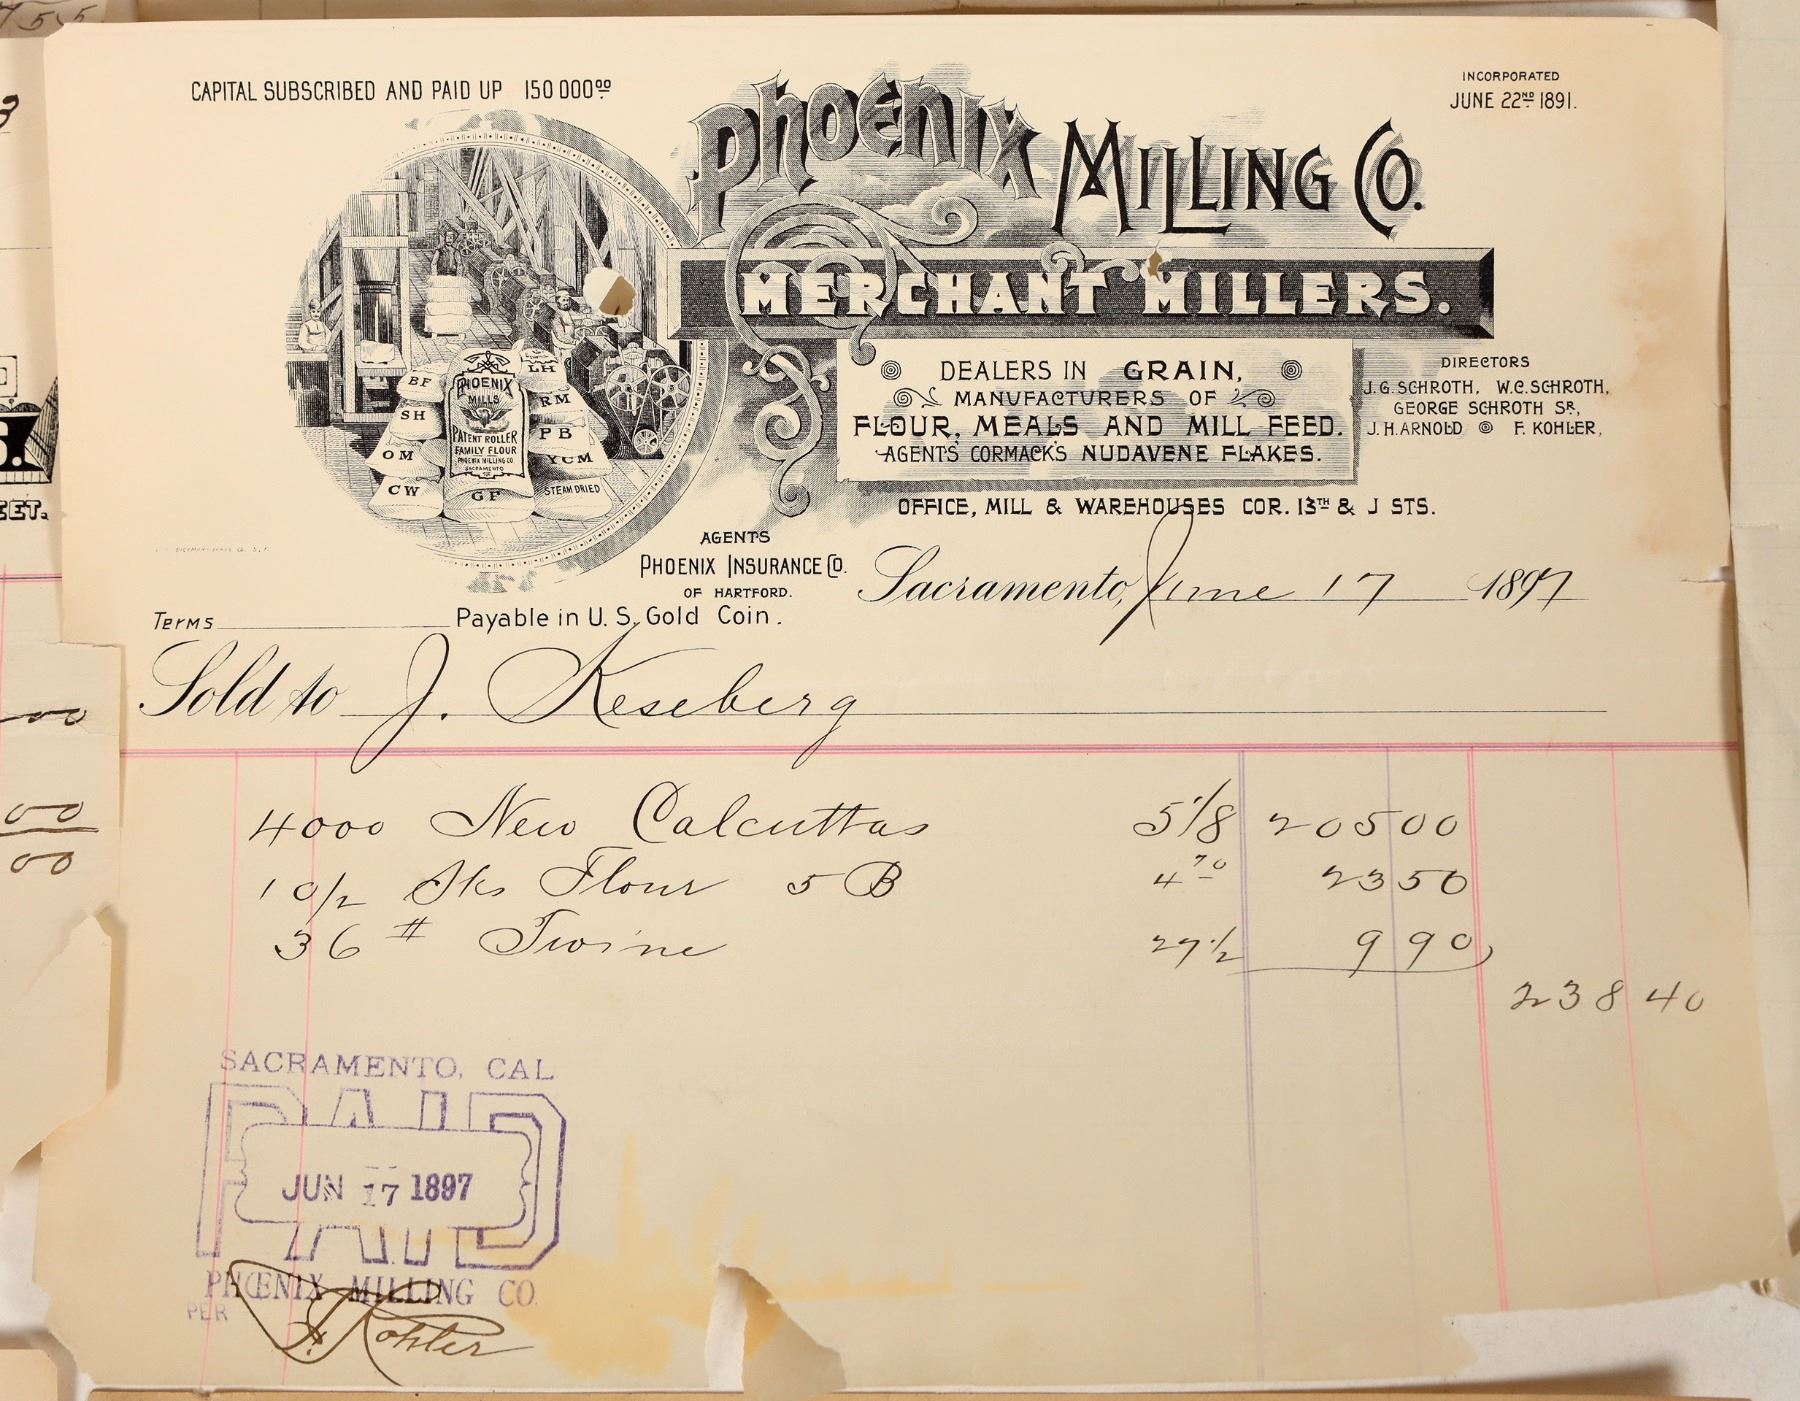 CAPITAL SUBSCRIBED AND PAID UP 150 000 00
INCORPORATED
JUNE 22ND 1891.
Phoenix Milling Co.
MERCHANT MILLERS.
DEALERS IN GRAIN,
MANUFACTURERS OF
FLOUR, MEALS AND MILL FEED.
AGENTS CORMACK'S NUDAVENE FLAKES.
DIRECTORS
J.G. SCHROTH, W.C. SCHROTH,
GEORGE SCHROTH SR,
J.H. ARNOLD F. KOHLER,
OFFICE, MILL & WAREHOUSES COR. 13TH & J STS.
BF
SH
OM
CW
PHOENIX
MILLS
PATENT ROLLER
FAMILY FLOUR
PHOENIX MILLING CO.
SACRAMENTO
GF
LH
RM
PB
YCM
STEAM DRIED
AGENTS
PHOENIX INSURANCE CO.
OF HARTFORD.
Sacramento, June 17 1897
Terms Payable in U.S. Gold Coin.
Sold to J. Keseberg
4000 New Calcuttas 5 1/8 205 00
10/2 Sks Flour 5 B 4 70 23 50
36 # Twine 27 1/2 9 90
238 40
SACRAMENTO, CAL
PAID
JUN 17 1897
PHOENIX MILLING CO.
PER F. Kohler
EET.